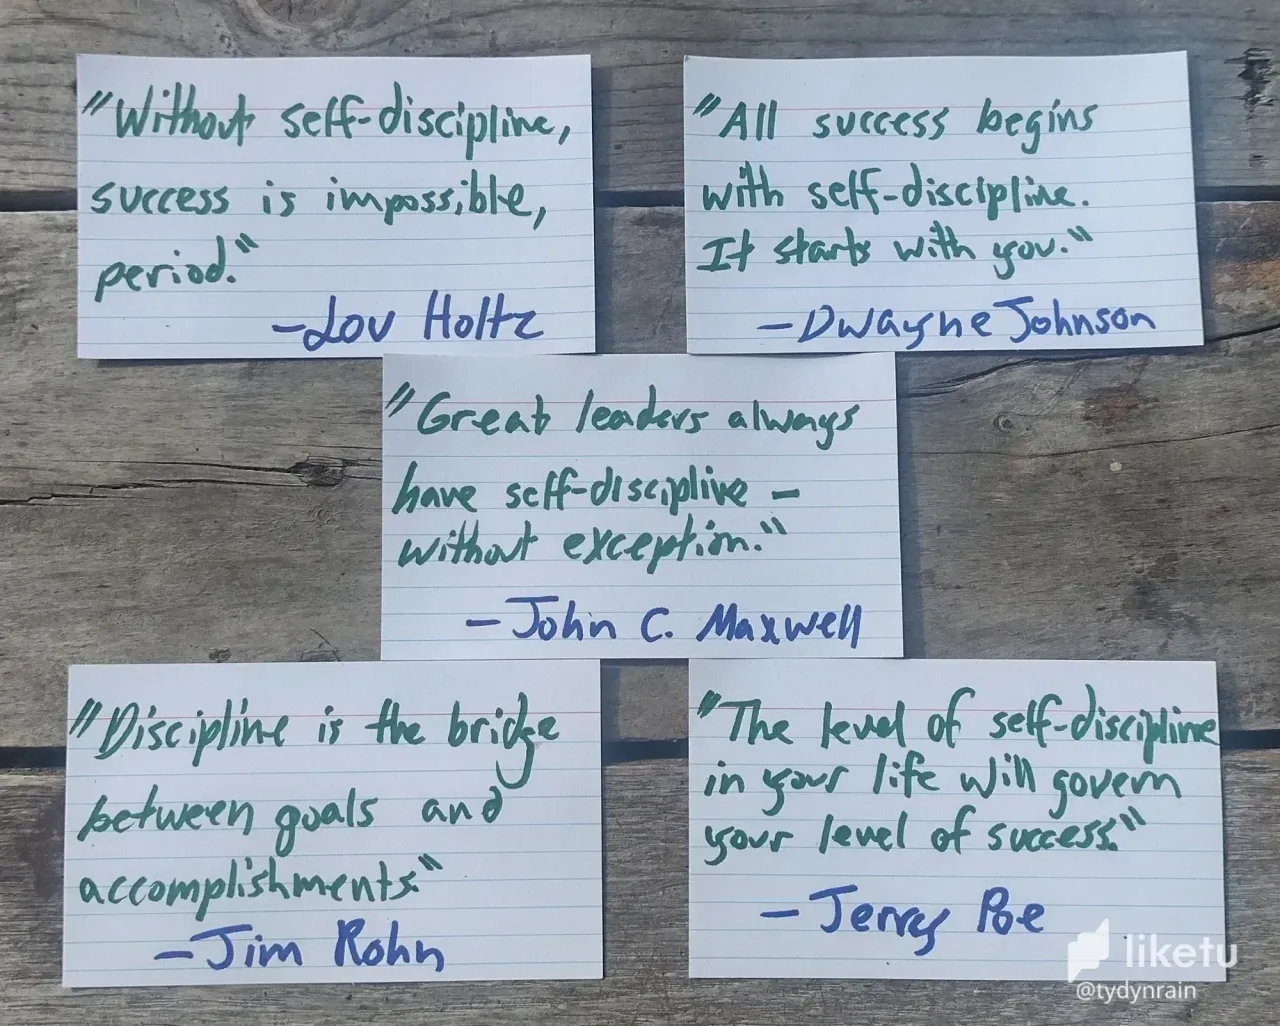 "Without self-discipline,
success is impossible,
period."
-Lou Holtz
"All success begins
with self-discipline.
It starts with you."
-Dwayne Johnson
"Great leaders always
have self-discipline -
without exception."
-John C. Maxwell
"Discipline is the bridge
between goals and
accomplishments."
-Jim Rohn
"The level of self-discipline
in your life will govern
your level of success."
-Jerry Poe
liketu
@tydynrain